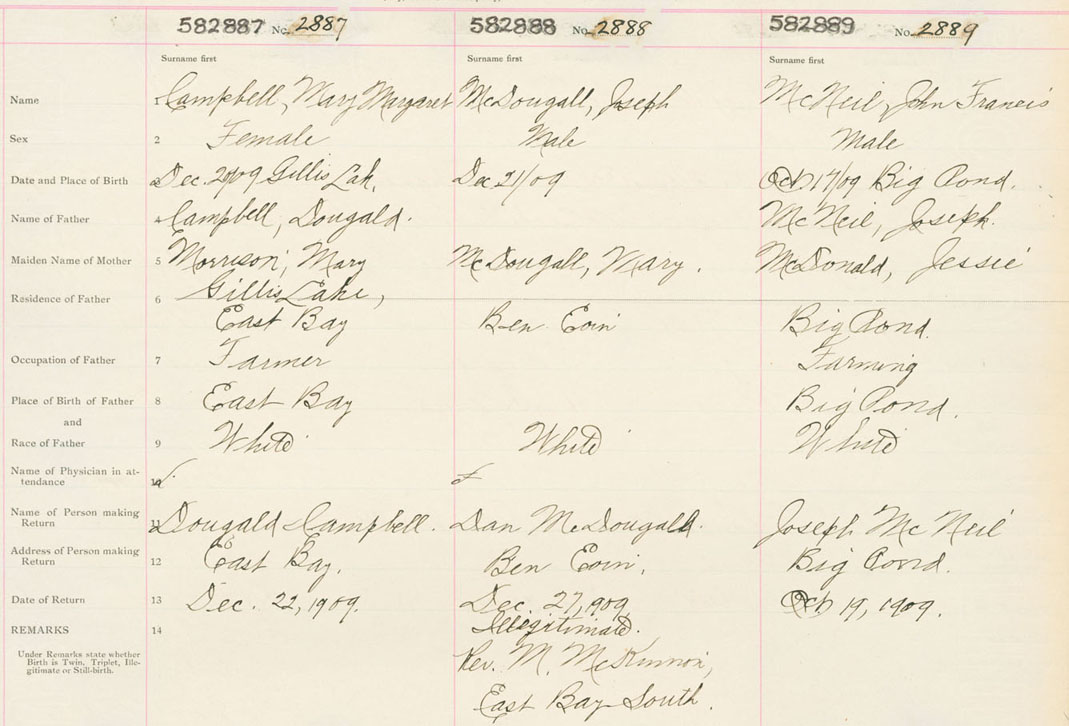 582887 No. 2887 582888 No. 2888 582889 No. 2889
Surname first Surname first Surname first
Name 1 Campbell, Mary Margaret McDougall, Joseph McNeil, John Francis
Sex 2 Female Male Male
Date and Place of Birth Dec. 20/09 Gillis Lak, Dec 21/09 Oct 17/09 Big Pond.
Name of Father 4 Campbell, Dougald. McNeil, Joseph.
Maiden Name of Mother 5 Morrison, Mary McDougall, Mary. McDonald, Jessie
Residence of Father 6 Gillis Lake,
East Bay Ben Eoin Big Pond.
Occupation of Father 7 Farmer Farming
Place of Birth of Father 8 East Bay Big Pond.
and
Race of Father 9 White White White
Name of Physician in at-
tendance 10
Name of Person making
Return 11 Dougald Campbell. Dan McDougald. Joseph McNeil
Address of Person making
Return 12 East Bay. Ben Eoin, Big Pond.
Date of Return 13 Dec. 22, 1909. Dec. 27, 909 Oct 19, 1909.
REMARKS 14 Illegitimate.
Under Remarks state whether
Birth is Twin, Triplet, Ille-
gitimate or Still-birth.
Rev. M. McKinnon,
East Bay South.